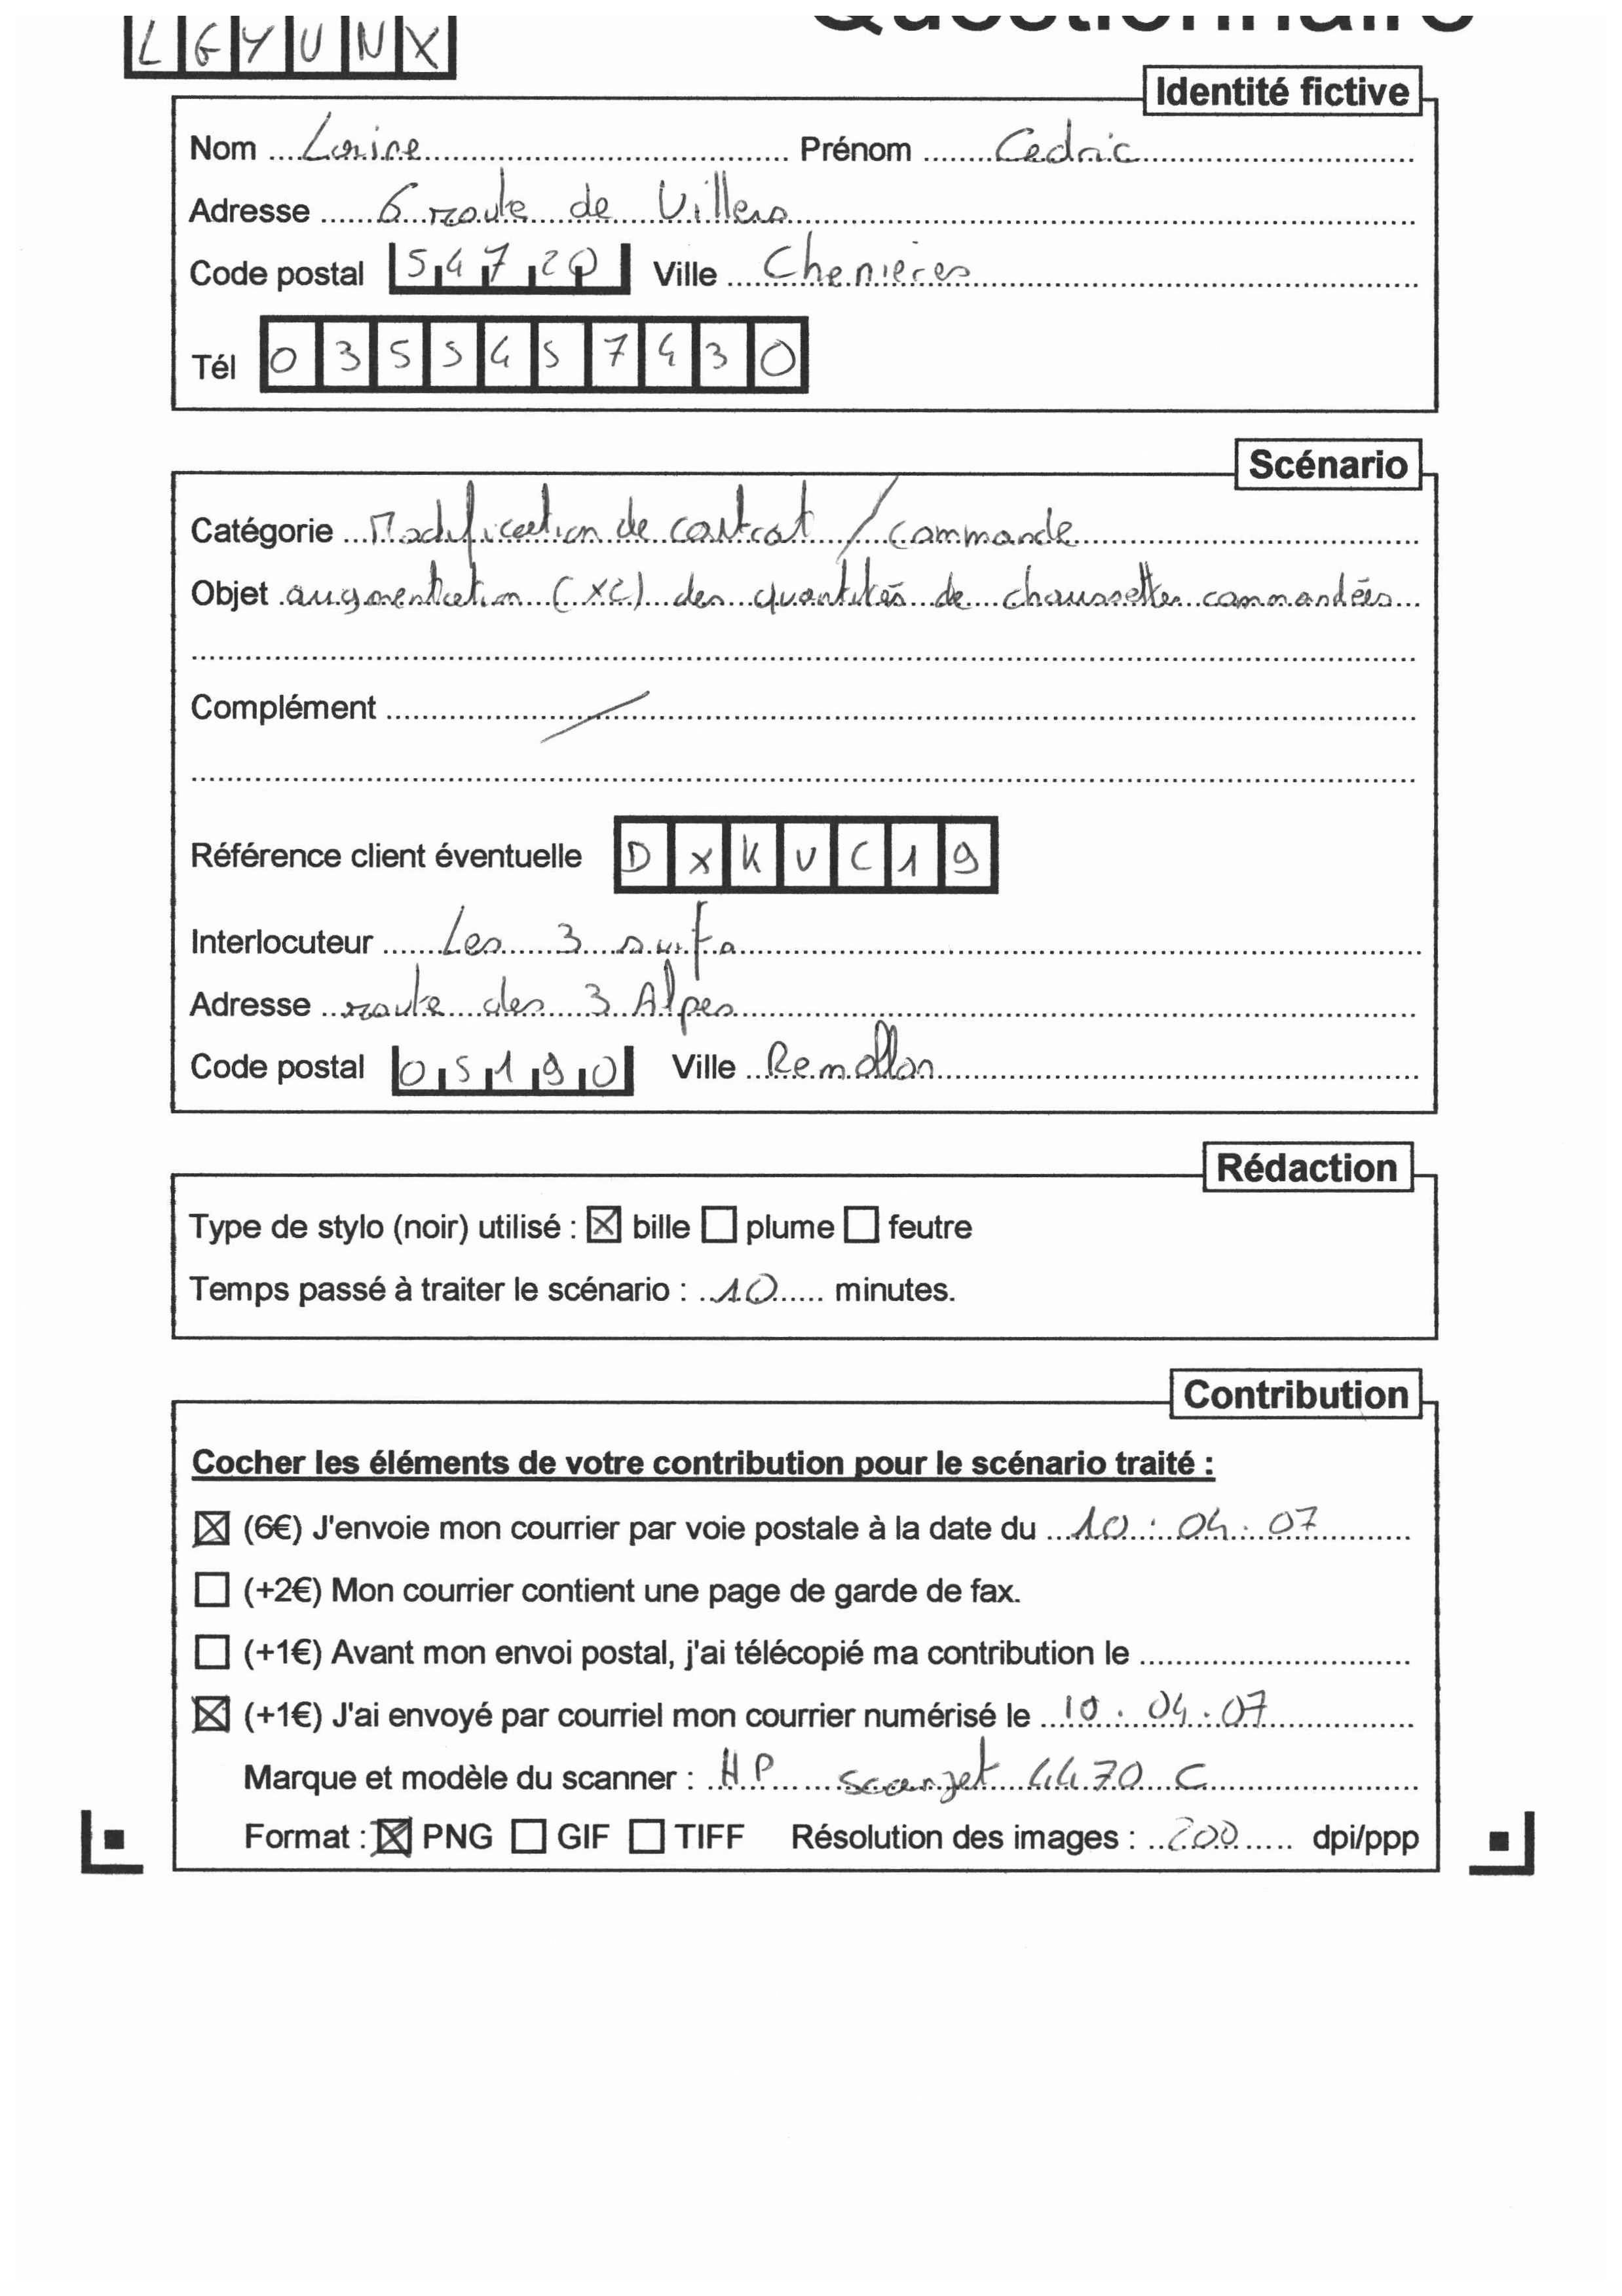 LGYUNX Questionnaire
Identité fictive
Nom Lorine Prénom Cedric
Adresse 6 route de Villers
Code postal 54720 Ville Chenieres
Tél 0355457430
Scénario
Catégorie Modification de contrat / commande
Objet augmentation (x2) des quantités de chaussettes commandées
Complément /
Référence client éventuelle DXKVC19
Interlocuteur Les 3 surfs
Adresse route des 3 Alpes
Code postal 05190 Ville Remollon
Rédaction
Type de stylo (noir) utilisé : ☒ bille ☐ plume ☐ feutre
Temps passé à traiter le scénario : 10 minutes.
Contribution
Cocher les éléments de votre contribution pour le scénario traité :
☒ (6€) J'envoie mon courrier par voie postale à la date du 10.04.07
☐ (+2€) Mon courrier contient une page de garde de fax.
☐ (+1€) Avant mon envoi postal, j'ai télécopié ma contribution le
☒ (+1€) J'ai envoyé par courriel mon courrier numérisé le 10.04.07
Marque et modèle du scanner : HP scanjet 4470 C
Format : ☒ PNG ☐ GIF ☐ TIFF Résolution des images : 200 dpi/ppp